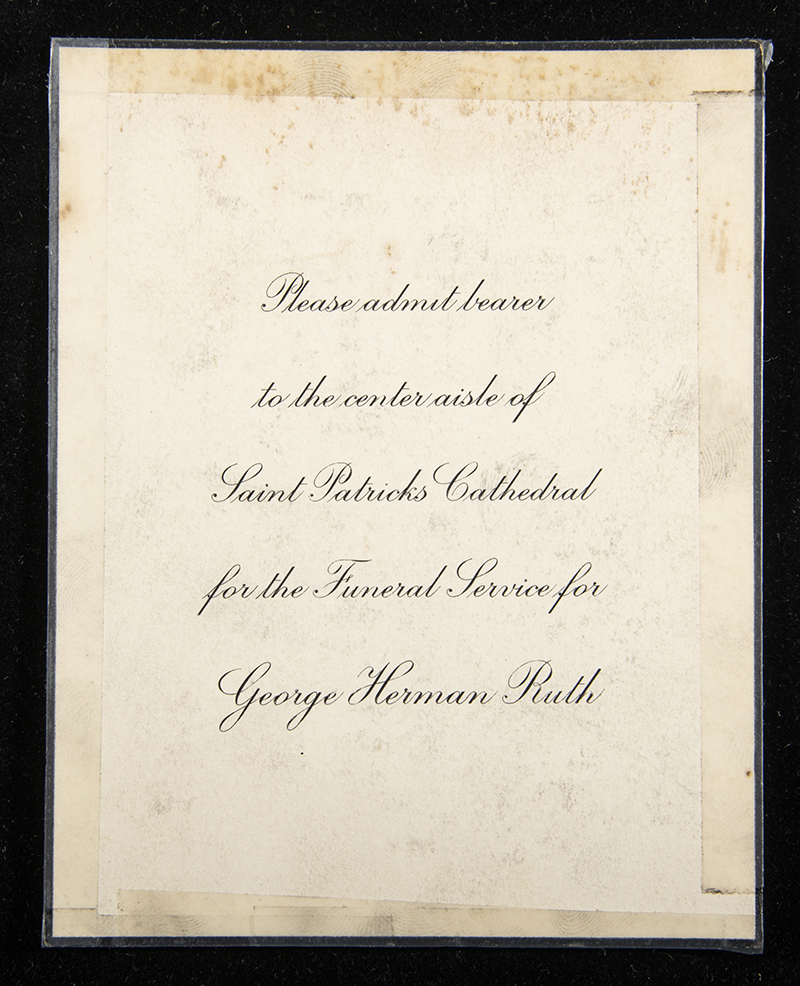 Please admit bearer
to the center aisle of
Saint Patricks Cathedral
for the Funeral Service for
George Herman Ruth